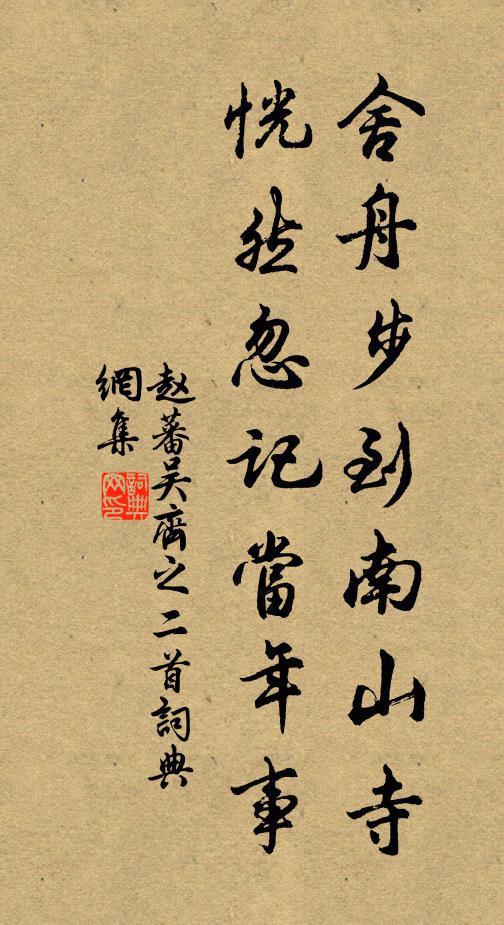 舍舟步到南山寺
恍然忽记當年事
赵蕃吴齊之二首詞典
網集
詞典
网印